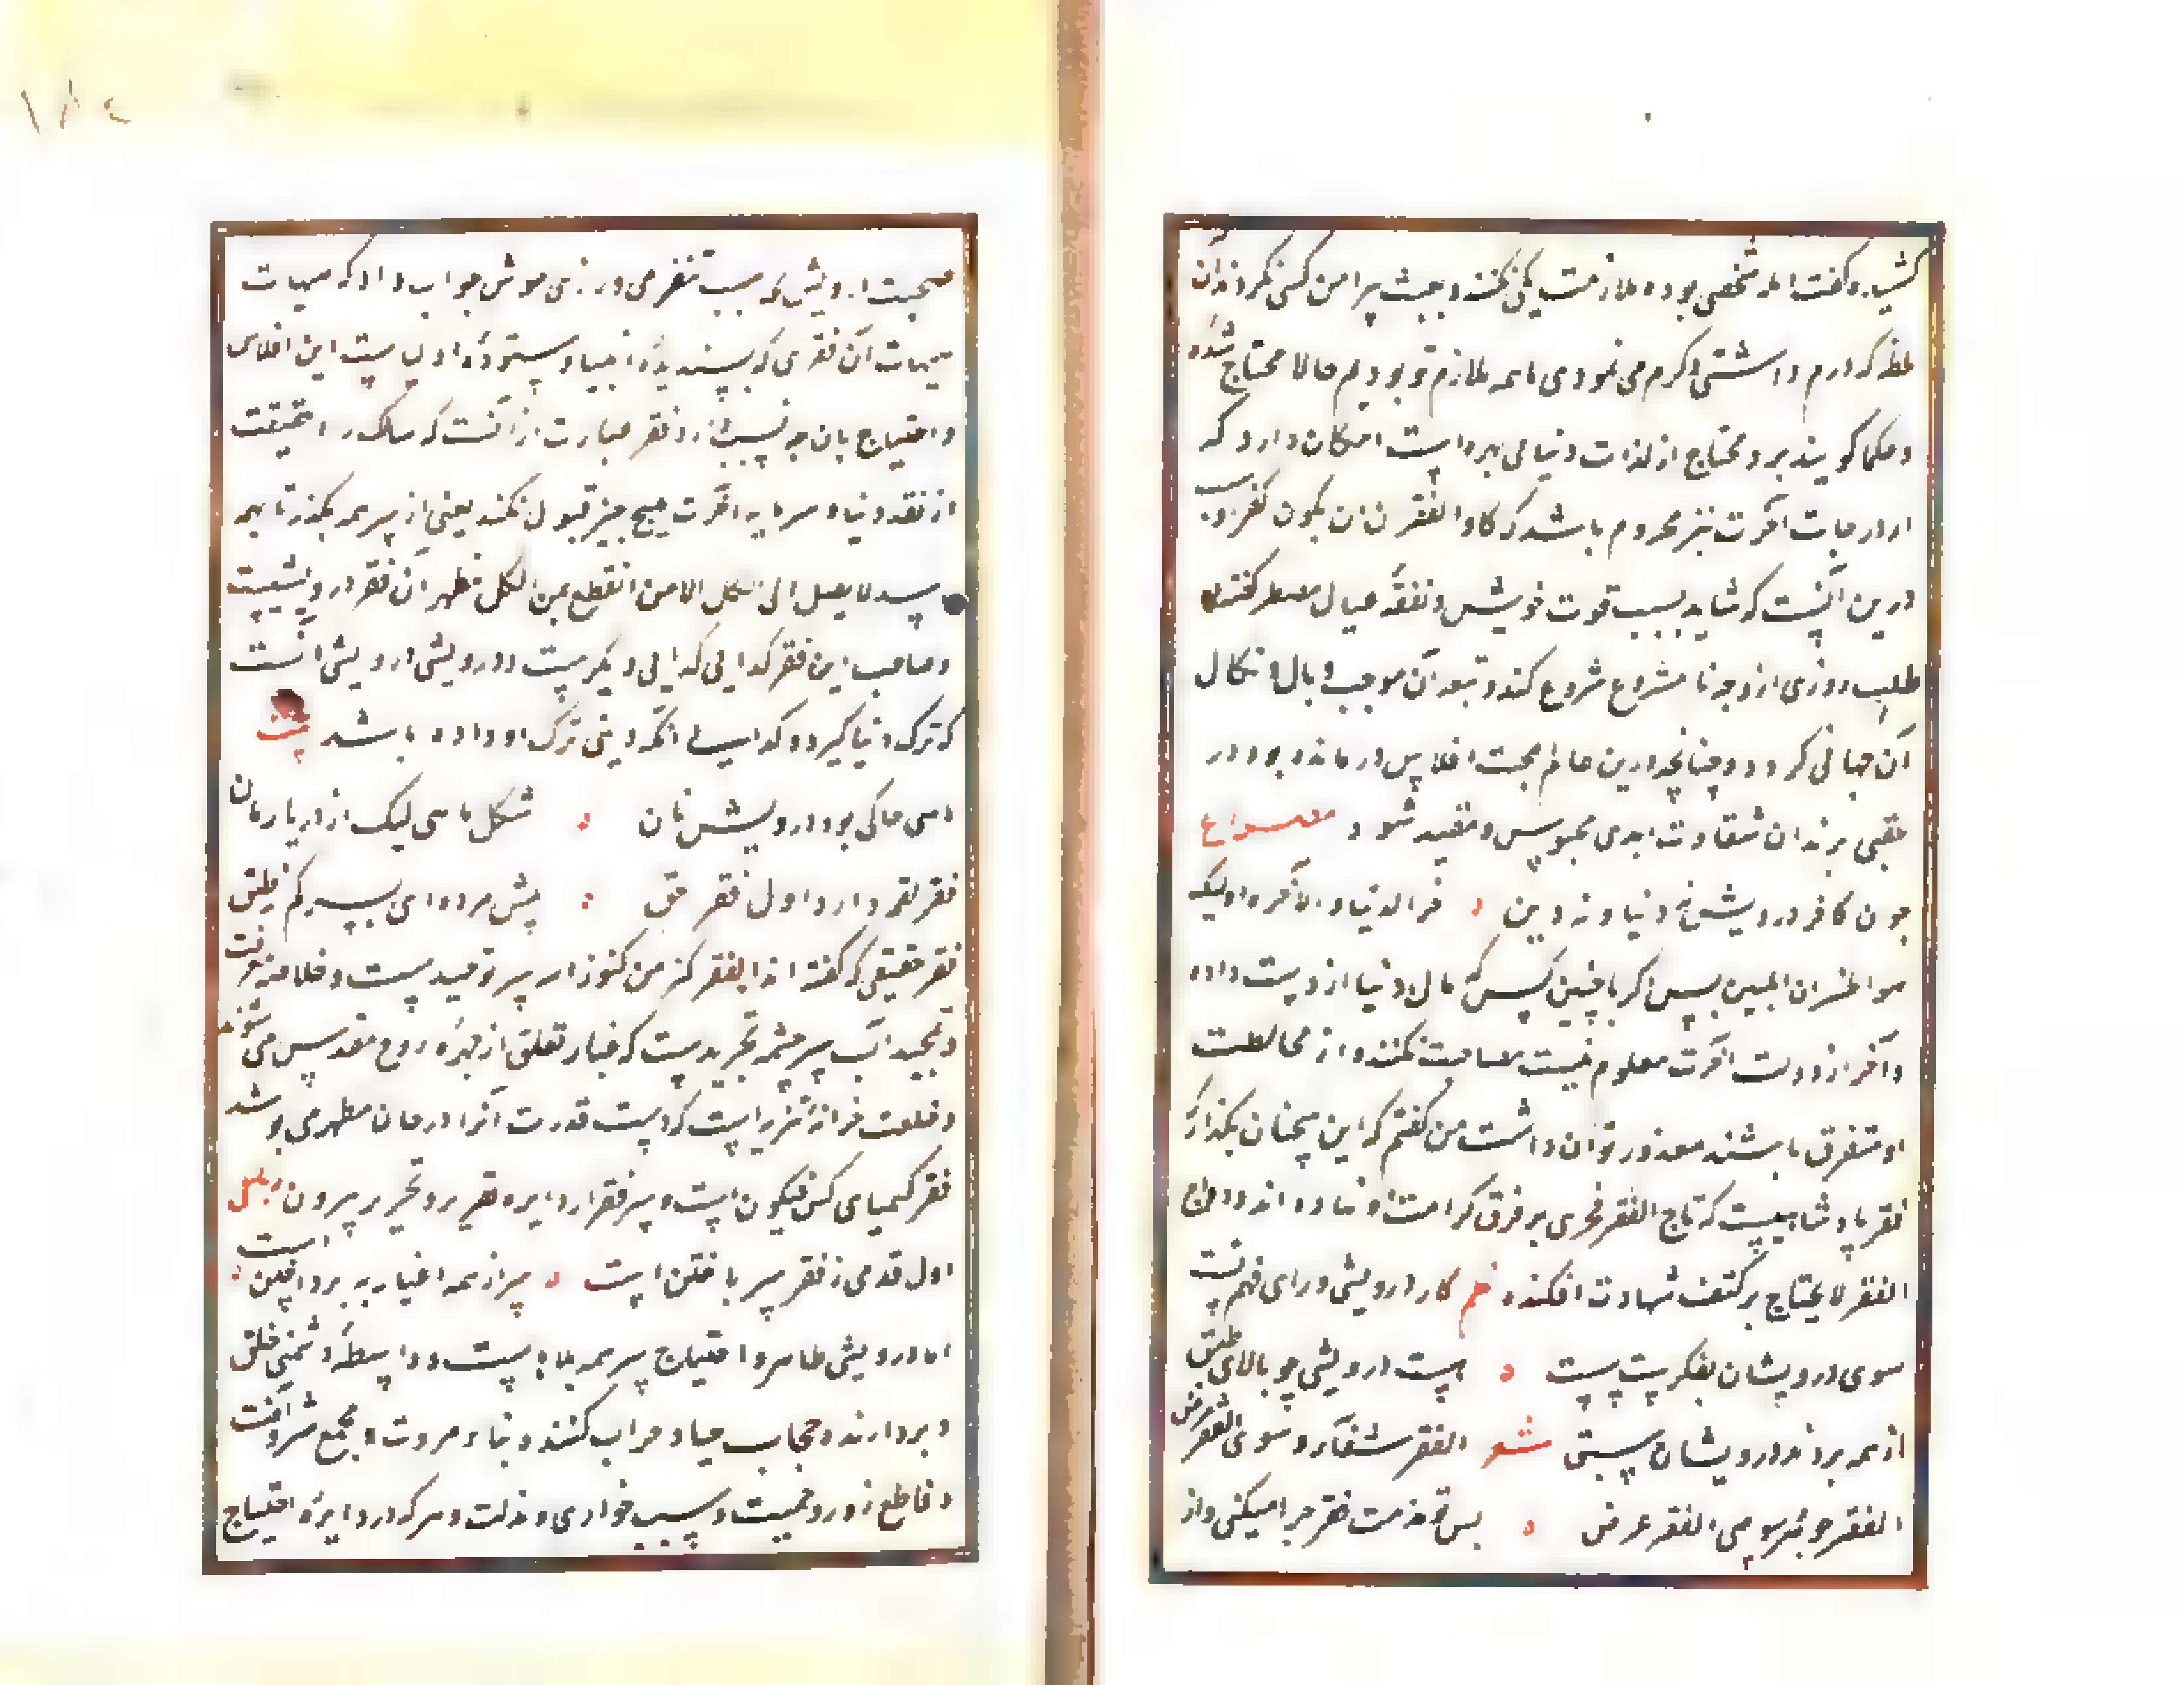 کشیده گفت ابله شخصی بوده ملازمت یکی نکنند و بعبث پیرامن کسی نکردند آن
لحظه که درم داشتی و کرم می نمودی ما همه ملازم تو بودیم حالا محتاج شده
و حکما گویند مرد محتاج از لذات دنیا بی بهره است امکان دارد که
از درجات آخرت نیز محروم باشد که کاد الفقر ان یکون کفرا و سبب
درین آنست که شاید بسبب قوت خویش و نفقه عیال مضطر گشته
طلب روزی از وجه نا مشروع شروع کند و تبعه آن موجب وبال و نکال
آن جهانی گردد و چنانچه درین عالم بجهت افلاس درمانده بود در
عقبی بزندان شقاوت ابدی محبوس و مقید شود مصراع
چون کافر درویش نه دنیا و نه دین خسر الدنیا و الآخره اولیک
هو الخسران المبین پس اگر با چنین کس که مال دنیا از دست داده
و آخر از دولت آخرت معلوم نیست مصاحبت نکنند و از مخالطت
او متفرق باشند معذور توان داشت من گفتم که این سخنان بگذار که
فقر پادشاهیست که تاج الفقر فخری بر فرق کرامت او نهاده اند و دواج
الفقر لا یحتاج بر کتف شهادت افکنده نظم کار درویشی ورای فهم تست
سوی درویشان بفکر سست سست هست درویشی چو بالای طبق
از همه بردند درویشان سبق شعر الفقر شفاء و سوی الفقر مرض
الفقر جوهر و سوی الفقر عرض پس تو مذمت فقر چرا میکنی و از
صحبت درویش بچه سبب تنفر می ورزی موش جواب داد که هیهات
هیهات آن فقری که پسندیده انبیا و ستوده اولیاست این افلاس
و احتیاج بآن چه نسبت دارد فقر عبارت از آنست که سالک راه حقیقت
از نقد دنیا و سرمایه آخرت هیچ چیز قبول نکند یعنی از سر همه بگذرد تا بهمه
رسد لا یصل الی الکل الا من انقطع عن الکل مظهر آن فقر درویشیست
و صاحب این فقر گدایی گدایی دیگرست و درویشی درویشی آنست
که ترک دنیا گیرد و گدا آنکه دنیی ترک او داده باشد
ماهی خاکی بود درویش نان شکل ماهی لیک از دریا رمان
فقر لقمه دارد او نی فقر حق پیش مرده ای پسر کم نه طبق
فقر حقیقی که گفته اند الفقر کنز من کنوز الله سر توحیدست و خلاصه معرفت
و تمجید آب سرچشمه تجریدست که غبار تعلق از چهره روح مقدس می شوید
و خلعت خزانه تنزیه است که دست قدرت آنرا در جان مطهر می پوشد
فقر کیمیای کن فیکون است و سر فقر از دایره تقریر و تحریر بیرون است
اول قدمی ز فقر سر باختن است سر از همه اغیار بپرداختن
اما درویشی ظاهر و احتیاج سر همه بلاهاست و واسطه دشمنی خلق
و بردارنده حجاب حیا و خراب کننده بناء مروت و مجمع شر و آفت
و قاطع زور و حمیت و سبب خواری و مذلت و هر که در دایره احتیاج
۱۸۴